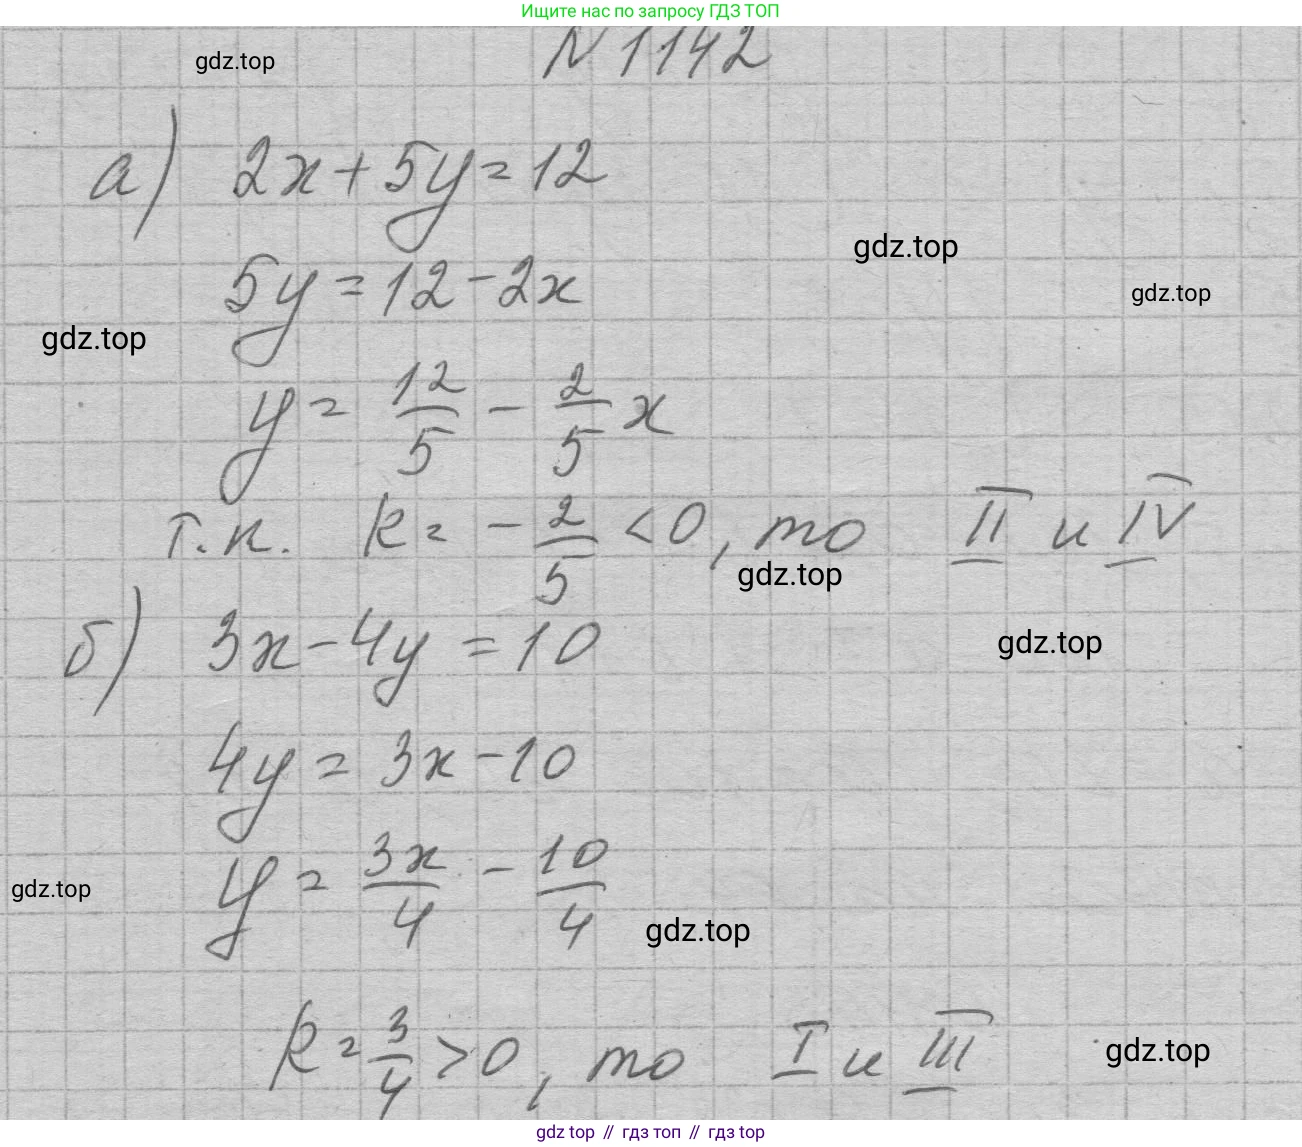 Ищите нас по запросу ГДЗ ТОП
N 1142
gdz.top
а) 2x + 5y = 12
gdz.top
5y = 12 - 2x
gdz.top
gdz.top
y = 12/5 - 2/5 x
т.к. k = - 2/5 < 0, то II и IV
gdz.top
б) 3x - 4y = 10
gdz.top
4y = 3x - 10
y = 3x/4 - 10/4
gdz.top
gdz.top
k = 3/4 > 0, то I и III
gdz.top
gdz top // гдз топ // гдз top